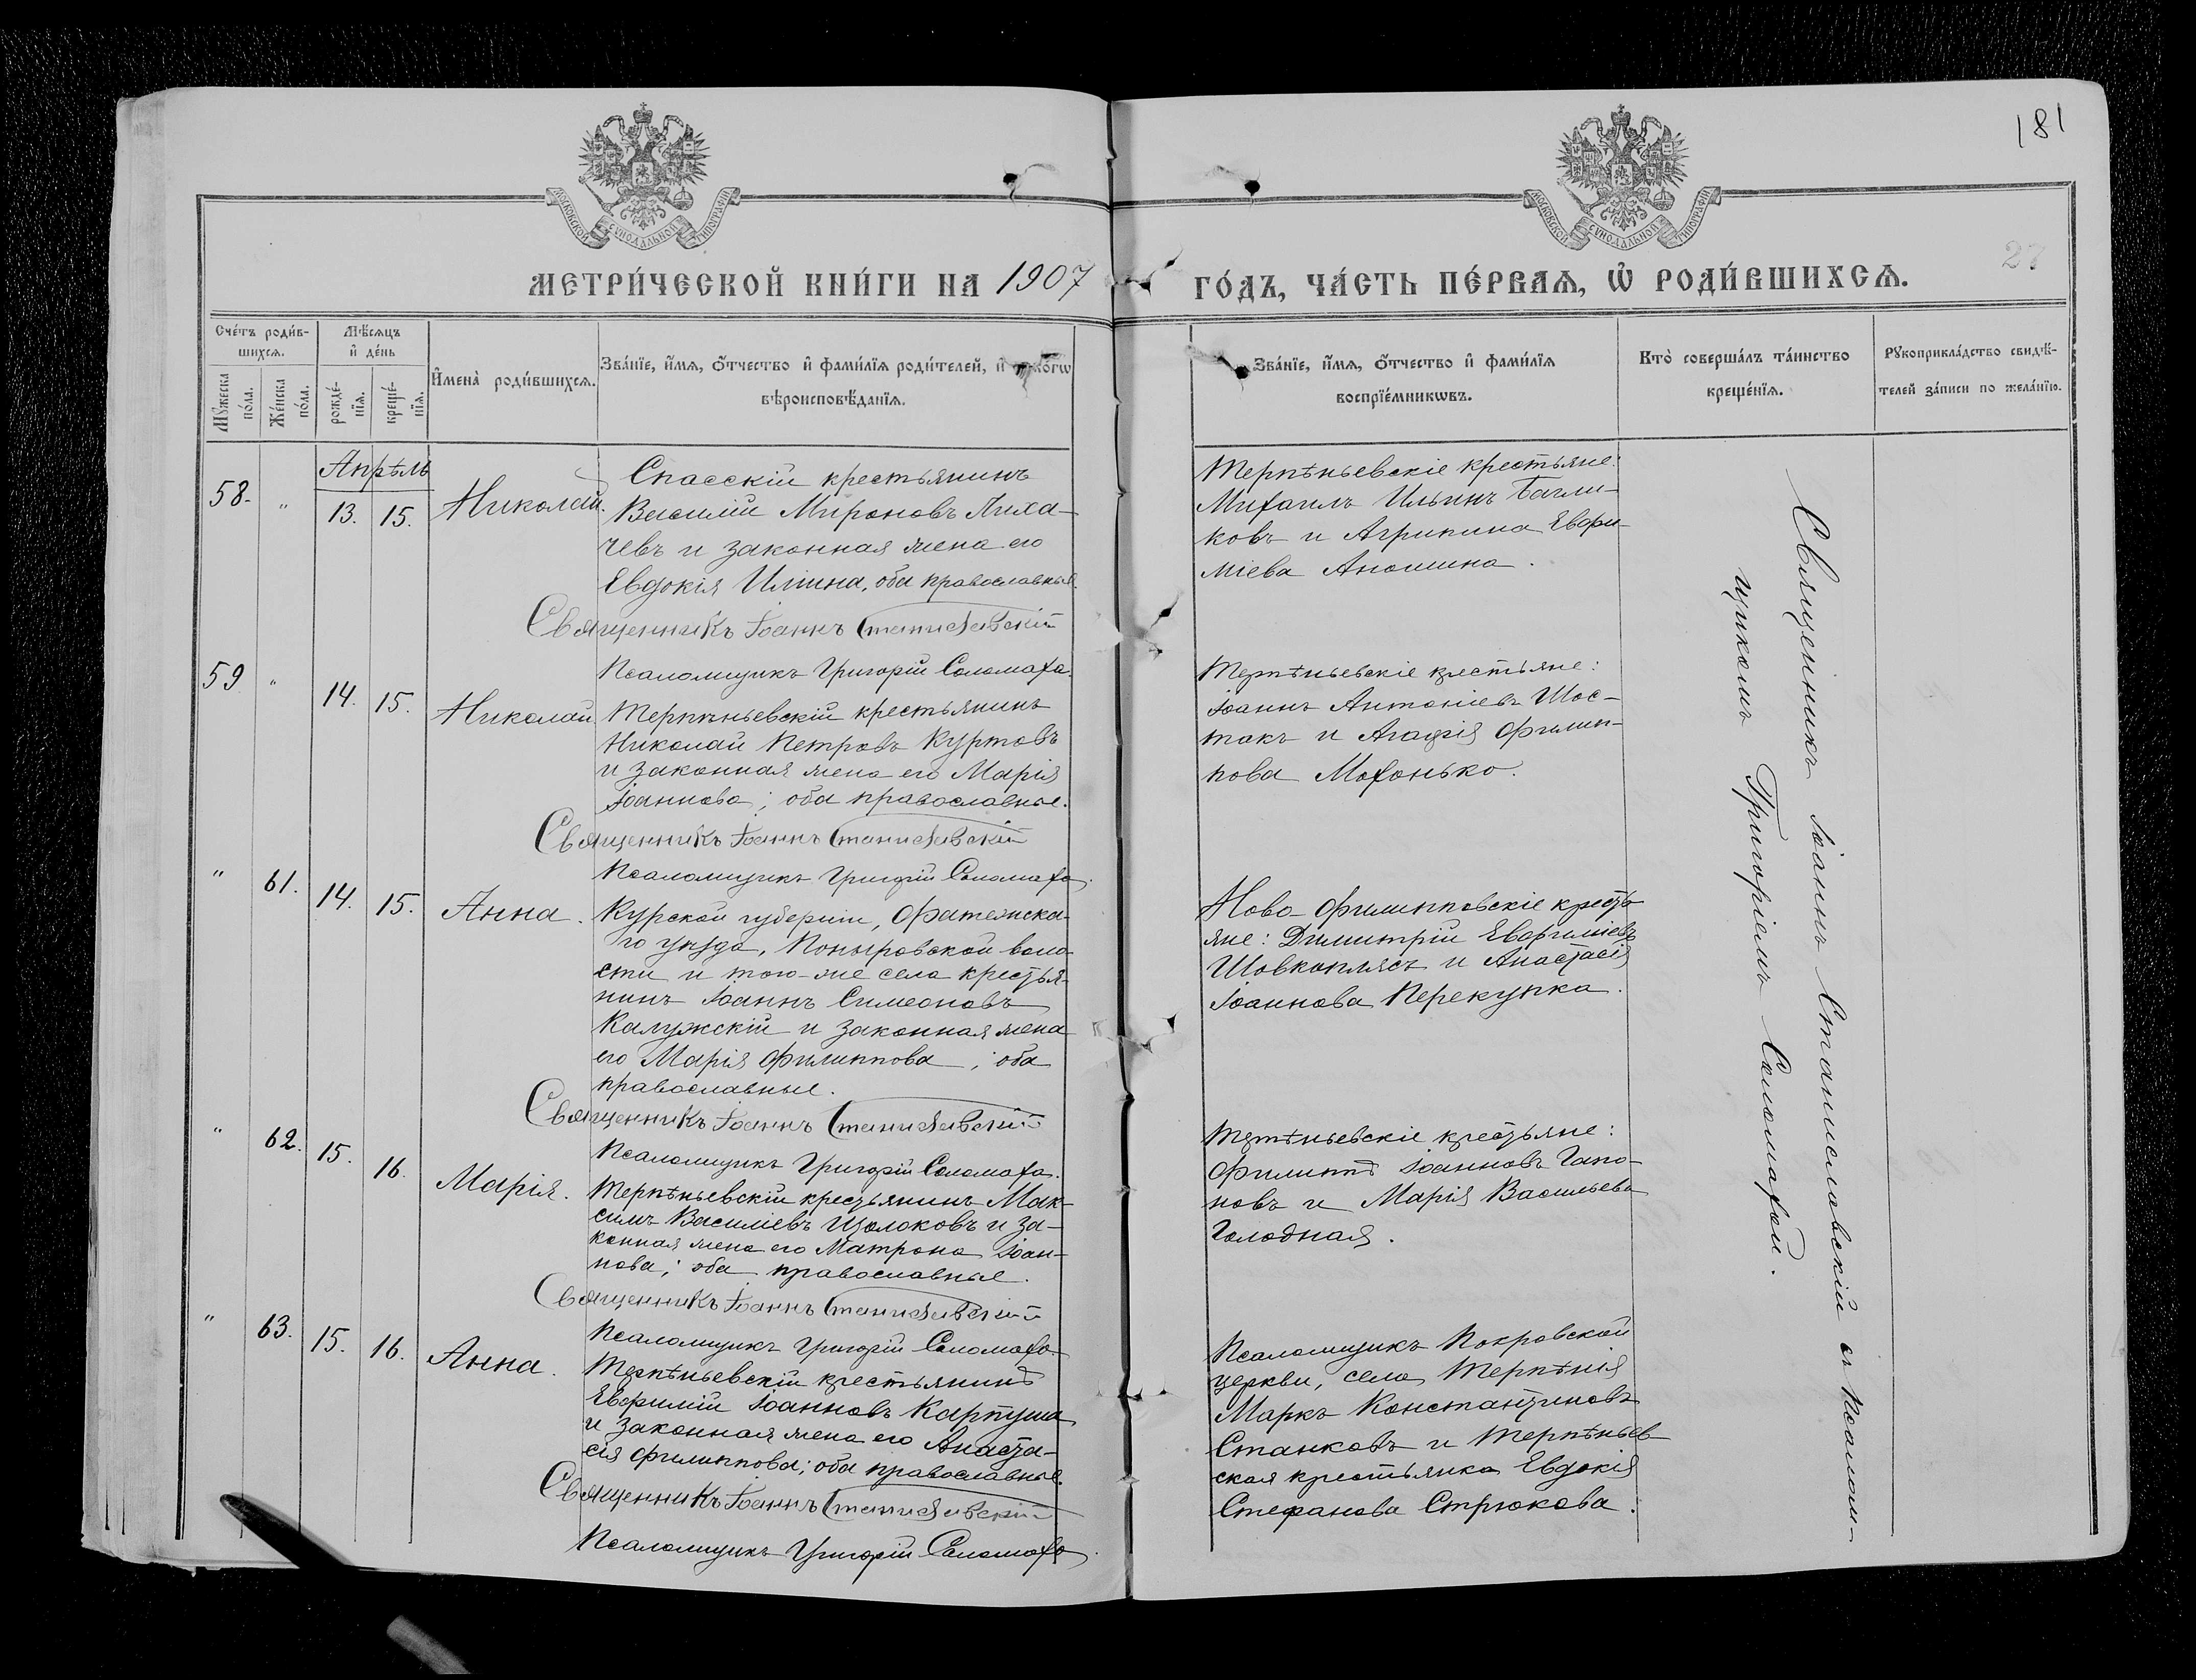 181
27
МОСКОВСКОЙ СѴНОДАЛЬНОЙ ТИПОГРАФІИ
МОСКОВСКОЙ СѴНОДАЛЬНОЙ ТИПОГРАФІИ
МЕТРИ́ЧЕСКОЙ КНИ́ГИ НА 1907
ГО́ДЪ, ЧА́СТЬ ПЕ́РВАѦ, Ѡ҆ РОДИ́ВШИХСѦ.
Сче́тъ роди́в-
шихсѧ.
Мꙋ́жеска по́ла.
Же́нска по́ла.
Мѣ́сѧцъ
и҆ де́нь
рожде́-
нїѧ.
креще́-
нїѧ.
И҆мена̀ роди́вшихсѧ.
Зва́нїе, и҆́мѧ, ѻ҆́тчество и҆ фами́лїѧ роди́телей, и҆
вѣроисповѣ́данїѧ.
Зва́нїе, и҆́мѧ, ѻ҆́тчество и҆ фами́лїѧ
воспрїе́мникѡвъ.
Кто̀ соверша́лъ та́инство
креще́нїѧ.
Рꙋкоприкла́дство свидѣ́-
телей за́писи по жела́нїю.
Апрѣль
58. " 13. 15. Николай.
Спасскій крестьянинъ
Василій Мироновъ Лиха-
чевъ и законная жена его
Евдокія Иліина, оба православные.
Священникъ Іоаннъ Станиславскій
Псаломщикъ Григорій Соломаха.
Терпѣньевскіе крестьяне:
Михаилъ Ильинъ Багли-
ковъ и Агрипина Евфи-
міева Аношина.
59 " 14. 15. Николай.
Терпѣньевскій крестьянинъ
Николай Петровъ Куртовъ
и законная жена его Марія
Іоаннова; оба православные.
Священникъ Іоаннъ Станиславскій
Псаломщикъ Григорій Соломаха.
Терпѣньевскіе крестьяне:
Іоаннъ Антоніевъ Шос-
такъ и Агафія Филип-
пова Мохонько.
" 61. 14. 15. Анна.
Курской губерніи, Фатежска-
го уѣзда, Поныровской воло-
сти и того-же села крестья-
нинъ Іоаннъ Симеоновъ
Калужскій и законная жена
его Марія Филиппова; оба
православные.
Священникъ Іоаннъ Станиславскій
Псаломщикъ Григорій Соломаха.
Ново-Филипповскіе кресть-
яне: Димитрій Евфиміевъ
Шовкоплясъ и Анастасія
Іоаннова Перекупка.
" 62. 15. 16. Марія.
Терпѣньевскій крестьянинъ Мак-
симъ Василіевъ Щолоковъ и за-
конная жена его Матрона Іоан-
нова; оба православные.
Священникъ Іоаннъ Станиславскій
Псаломщикъ Григорій Соломаха.
Терпѣньевскіе крестьяне:
Филиппъ Іоанновъ Гапо-
новъ и Марія Васильева
Голодная.
" 63. 15. 16. Анна.
Терпѣньевскій крестьянинъ
Евфимій Іоанновъ Карпуша
и законная жена его Анаста-
сія Филиппова; оба православные.
Священникъ Іоаннъ Станиславскій
Псаломщикъ Григорій Соломаха.
Псаломщикъ Покровской
церкви, села Терпѣнія
Маркъ Константиновъ
Станковъ и Терпѣньев-
ская крестьянка Евдокія
Стефанова Стрюкова.
Священникъ Іоаннъ Станиславскій съ псалом-
щикомъ Григоріемъ Соломахой.